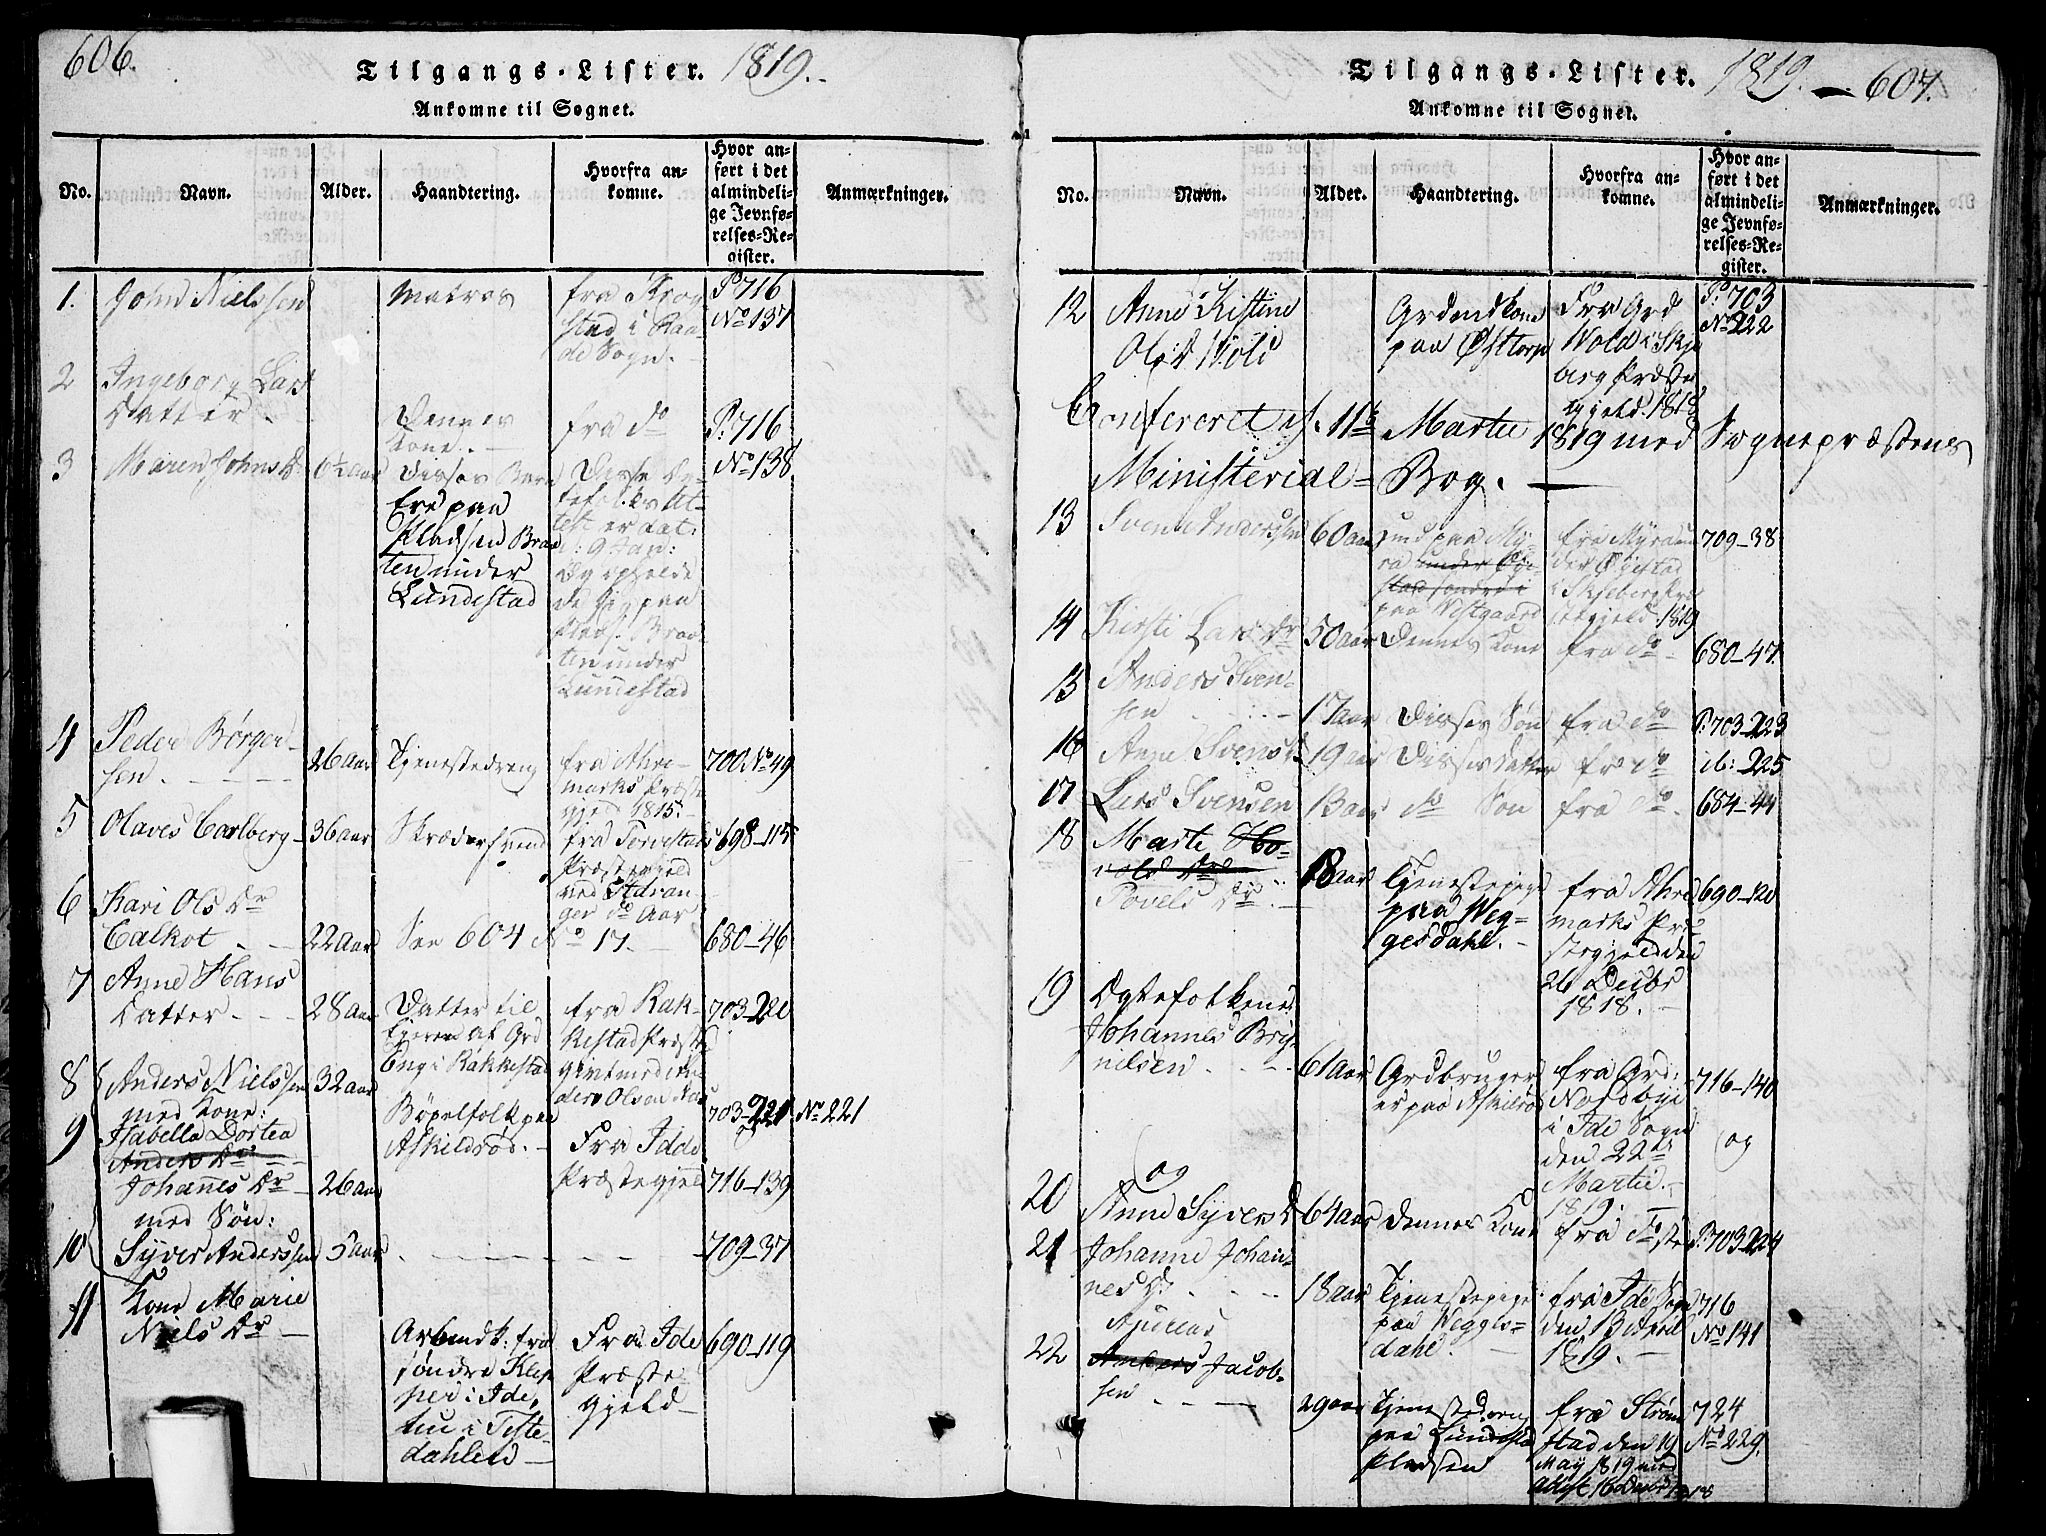 606.
Tilgangs-Lister. 1819.
Ankomne til Sognet.
No. Navn. Alder. Haandtering. Hvorfra ankomne. Hvor anført i det almindelige Jevnførelses-Register. Anmærkninger.
1. John Nielssen
Matros
fra Krog
stad i Raa
de Sogn.
P: 716
No 137
2 Ingeborg Lars
Datter.
Dennes
Kone.
fra do
P: 716
No 138
3 Maren Johns D. 6½ aar
Disses Barn
Ere paa
Pladsen Braa
ten under
Lundestad
Disse Eg
tefolks At
test er dat.
d: 9 Jan:
Og opholde
de sig paa
Plads. Braa
ten under
Lundestad
4 Peder Børger
sen. 26 aar Tjenestedreng
fra Ahre
marks Præste
gjeld 1815.
700. No 49
5 Olaves Carlberg 36 aar Skrædersvend
fra Torvestads
Præstegield
ved Stavan
ger do Aar
698-115
6 Kari Ols Dr
Calkot 22 aar See 604 No 17. 680-46
7 Anne Hans
Datter 28 aar
Datter til
Ejeren af Grd
Eng i Rakkestad
fra Rak
kestad Præste
givt med
Olsen
703-220
8 Anders Nielssen 32 aar
med Kone:
Bøpelfolk paa
Askildrød.
Fra Idde
Præstegjeld
703-221 No 221
9 Isabella Dortea
Anders Dr
Johanes Dr 26 aar
716-139
med Søn:
10 Syver Anderssen 5 aar
709-37
11 Kone Marie
Niels Dr
Arbmdk: fra
søndre Klep
per i Ide,
nu i Tiste
dahlen
Fra Ide
Præste
gjeld
690-119
Tilgangs-Lister. 1819. 607.
Ankomne til Sognet.
No. Navn. Alder. Haandtering. Hvorfra ankomne. Hvor anført i det almindelige Jevnførelses-Register. Anmærkninger.
12 Anne Kistine
Ols D Wold
Grdmdkone
paa Østtorp
Fra Grd
Wold i Skje
berg Præste
gjeld. 1818
P: 703
No 222
Confereret d. 11te Martii 1819 med Sognepræstens
Ministerial = Bog.
13 Svend Anderssen 60 aar
und paa My
ra under Øge
stad søndre i
paa Westgaard
fra Myra un
der Øgestad
i Skjeberg Præ
stegjeld 1819
709-38
14 Kirsti Lars Dr 50 aar Dennes Kone fra do 680-47.
15 Anders Sven
sen 17 aar Disses Søn fra do P. 703-223
16 Anne Svens D. 19 aar Disses Datter fr do ib: 225
17 Lars Svensen 13 aar do Søn fra do. 684-44
18 Marte Ho
vold Dr
Povels Dr. 18 aar
Tjenestepige
paa Weg
gesdahl.
fra Ahre
marks Præ
stegjeld den
26 Decbr
1818.
690-120
19 Egtefolkene
Johannes Bry
nilsen 61 aar
Grdbruger
er paa Askilrød
fra Grd:
Nordbye
i Ide Sogn
den 22de
Martii
1819.
716-140
og
og
20 Anne Syvers D 64 aar Dennes Kone fra do sted P. 703-224
21 Johanne Johan
nes D. 18 aar
Tjenestepige
paa Wegges
dahl.
fra Ide Sogn
den 13 April
1819.
716
No 141
22 Andreas
Ankers Jacob
sen 29 aar
Tjenestedreng
paa Lundestad
Pladsen
fra Strøm
stad den 19
May 1819 med
attest 16 Decbr 1818
724
No 229.